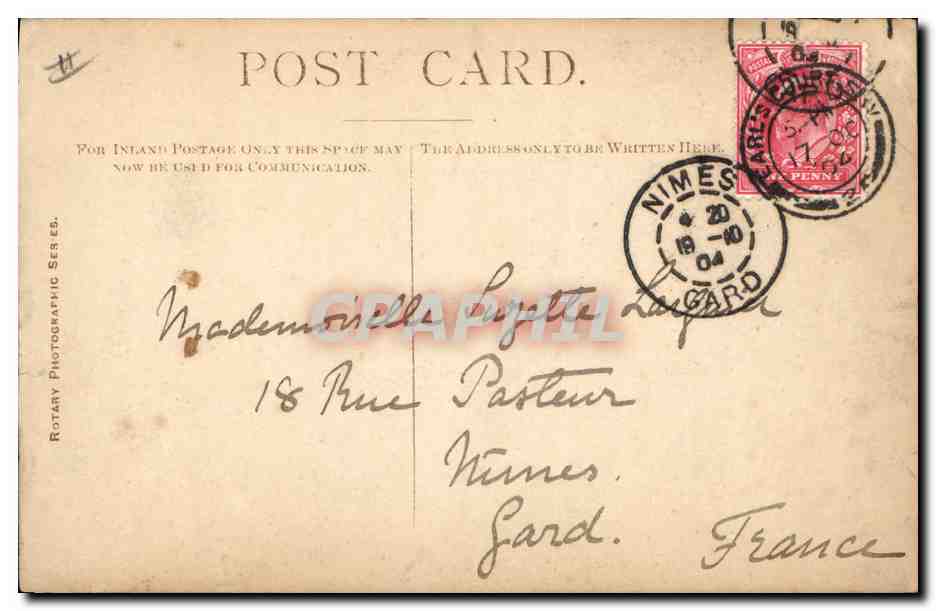 POST CARD.
FOR INLAND POSTAGE ONLY THIS SPACE MAY
NOW BE USED FOR COMMUNICATION.
THE ADDRESS ONLY TO BE WRITTEN HERE.
ROTARY PHOTOGRAPHIC SERIES.
EARL'S COURT S.W
5-PM
OC 17
04
ONE PENNY
NIMES
4 20
19 -10
04
GARD
CPAPHIL
Mademoiselle Suzette
18 Rue Pasteur
Nîmes.
Gard.
France